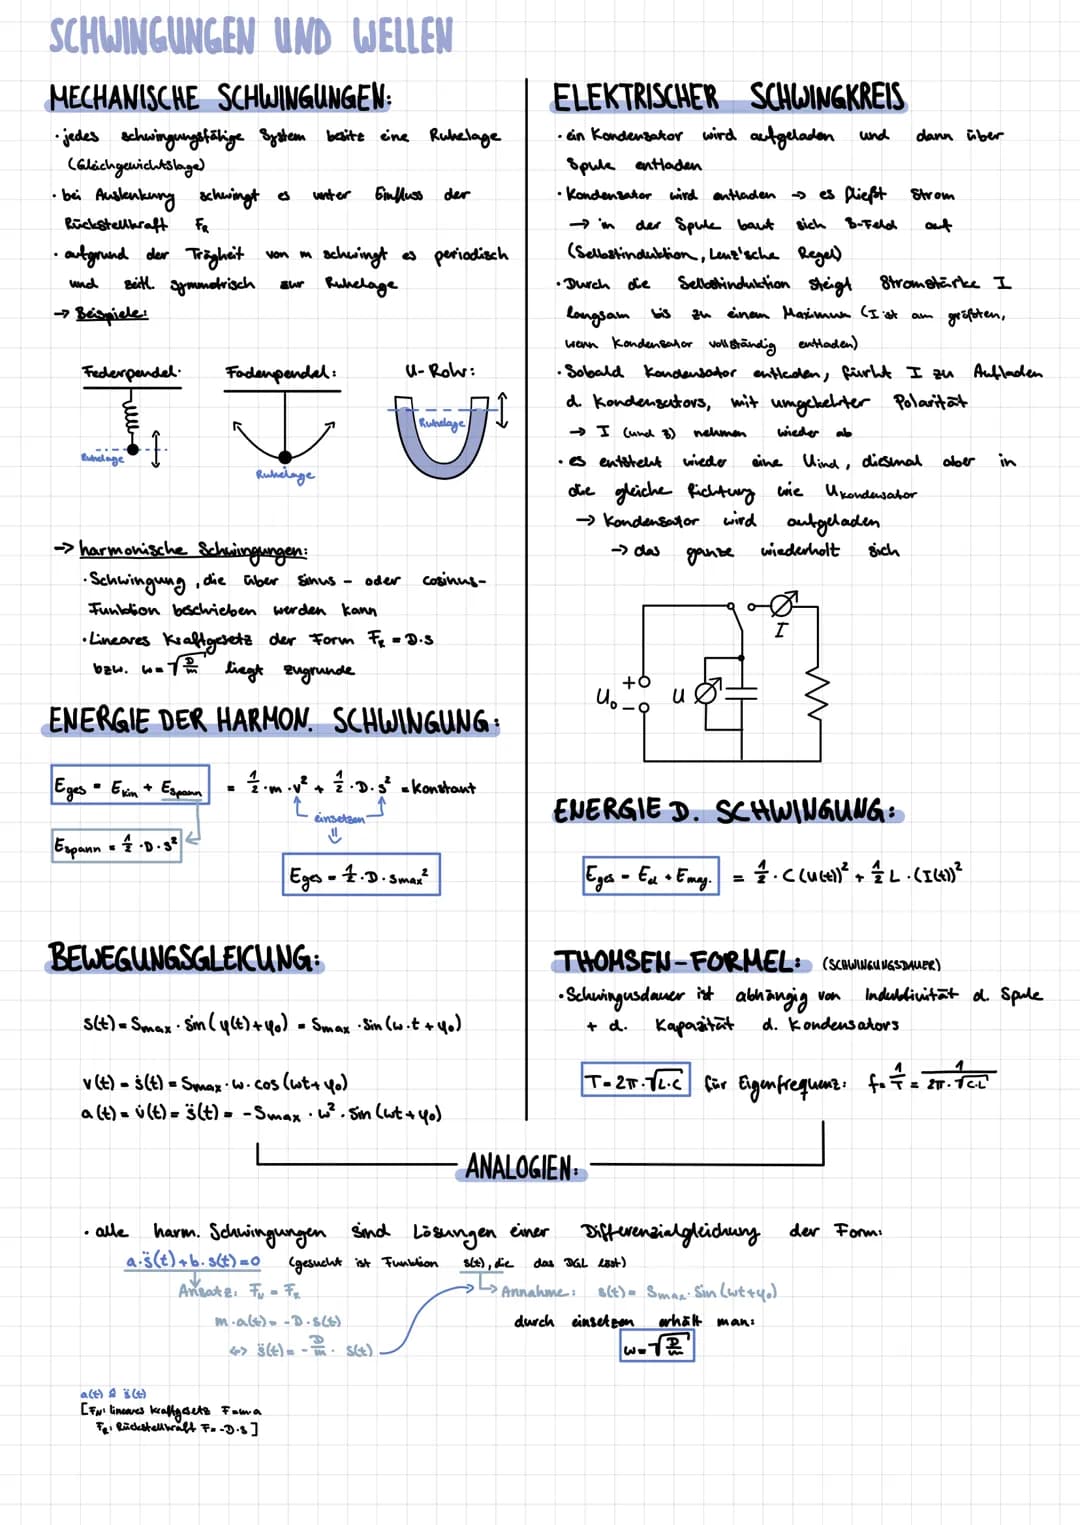 SCHWINGUNGEN UND WELLEN
MECHANISCHE SCHWINGUNGEN:
· jedes schwingungsfähige System besitz eine Ruhelage
(Gleichgewichtslage)
· bei Auslenkung schwingt es unter Einfluss der
Rückstellkraft F_R
· aufgrund der Trägheit von m schwingt es periodisch
und zeitl. symmetrisch zur Ruhelage
→ Beispiele:
Federpendel: Fadenpendel: U-Rohr:
Ruhelage
Ruhelage
Ruhelage
→ harmonische Schwingungen:
· Schwingung, die über Sinus- oder cosinus-
Funktion beschrieben werden kann
· Lineares Kraftgesetz der Form F_R = D·s
bzw. ω=√(D/m) liegt zugrunde
ENERGIE DER HARMON. SCHWINGUNG:
Eges = Ekin + Espann = 1/2·m·v² + 1/2·D·s² = Konstant
einsetzen
Espann = 1/2·D·s²
⇓
Eges = 1/2·D·smax²
BEWEGUNGSGLEICUNG:
s(t) = Smax · sin(φ(t)+φ₀) = Smax · sin(ω·t+φ₀)
v(t) = ṡ(t) = Smax·ω·cos(ωt+φ₀)
a(t) = v̇(t) = s̈(t) = -Smax·ω²·sin(ωt+φ₀)
ELEKTRISCHER SCHWINGKREIS
· ein Kondensator wird aufgeladen und dann über
Spule entladen
· Kondensator wird entladen → es fließt Strom
→ in der Spule baut sich B-Feld auf
(Selbstinduktion, Lenz'sche Regel)
· Durch die Selbstinduktion steigt Stromstärke I
langsam bis zu einem Maximum (I ist am größten,
wenn Kondensator vollständig entladen)
· Sobald Kondensator entladen, führt I zu Aufladen
d. Kondensators, mit umgekehrter Polarität
→ I (und B) nehmen wieder ab
· es entsteht wieder eine Uind, diesmal aber in
die gleiche Richtung wie Ukondensator
→ Kondensator wird aufgeladen
→ das ganze wiederholt sich
I
+
U₀
−
U
ENERGIE D. SCHWINGUNG:
Eges = Eel + Emag. = 1/2·C(U(t))² + 1/2 L·(I(t))²
THOMSEN-FORMEL: (SCHWINGUNGSDAUER)
· Schwingusdauer ist abhängig von Induktivität d. Spule
+ d. Kapazität d. Kondensators
T=2π·√(L·C) für Eigenfrequenz: f=1/T = 1/(2π·√(C·L))
ANALOGIEN:
· alle harm. Schwingungen sind Lösungen einer Differenzialgleichung der Form:
a·s̈(t)+b·s(t)=0 (gesucht ist Funktion s(t), die das DGL löst)
Ansatz: F_N = F_R
Annahme: s(t)= Smax·sin(ωt+φ₀)
m·a(t)= -D·s(t)
durch einsetzen erhält man:
⇔ s̈(t) = -D/m · s(t)
ω=√(D/m)
a(t) ≙ s̈(t)
[F_N: lineares Kraftgesetz F=m·a
F_R: Rückstellkraft F=-D·s]